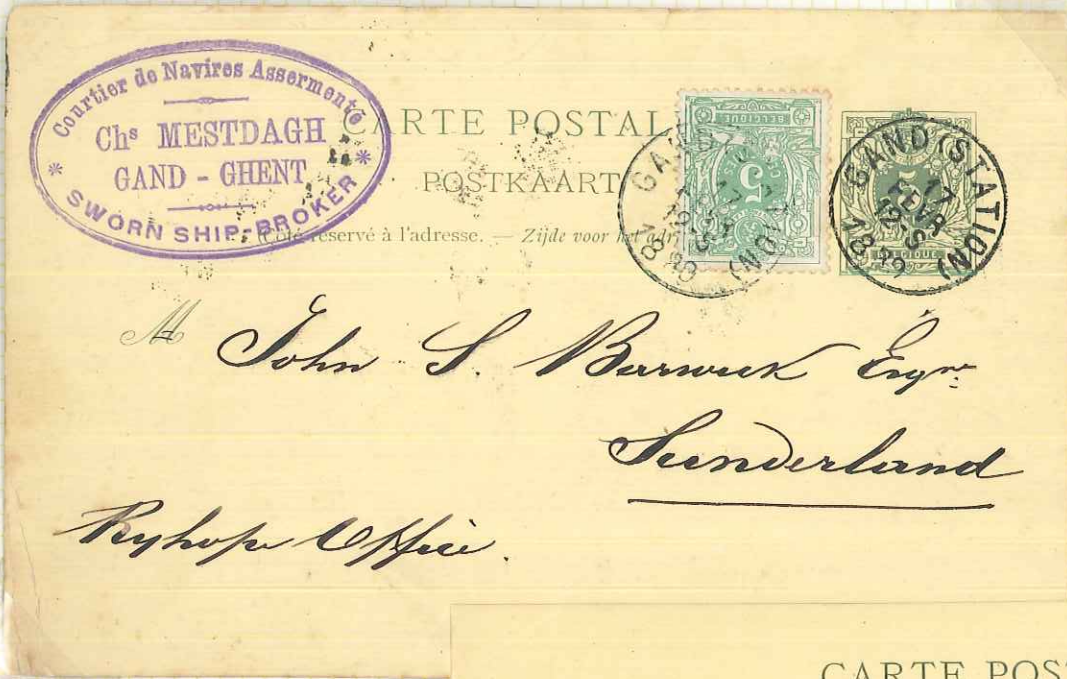 Courtier de Navires Assermenté
Chs MESTDAGH
GAND - GHENT
SWORN SHIP-BROKER
CARTE POSTAL
POSTKAART
Côté réservé à l'adresse. — Zijde voor het adr
BELGIQUE
5
GAND (STATION)
17
FEVR
12-S
BELGIQUE
M John S. Barwick Esqre
Sunderland
Ryhope Office.
CARTE POST